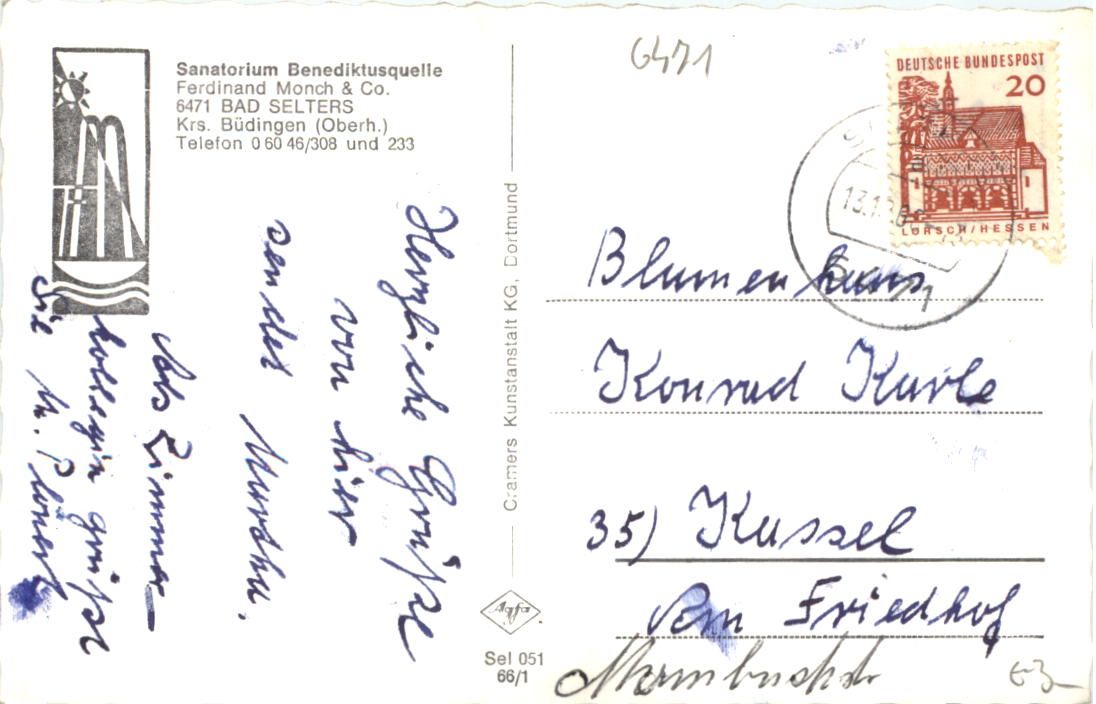 Sanatorium Benediktusquelle
Ferdinand Monch & Co.
6471 BAD SELTERS
Krs. Büdingen (Oberh.)
Telefon 0 60 46/308 und 233
Herzliche Grüße
von hier
sendet
Als Zimmer-
kollegin grüßt
Sie
Cramers Kunstanstalt KG, Dortmund
Agfa
Sel 051
66/1
6471
DEUTSCHE BUNDESPOST
20
LORSCH/HESSEN
Blumenhaus
Konrad Karle
35) Kassel
Am Friedhof